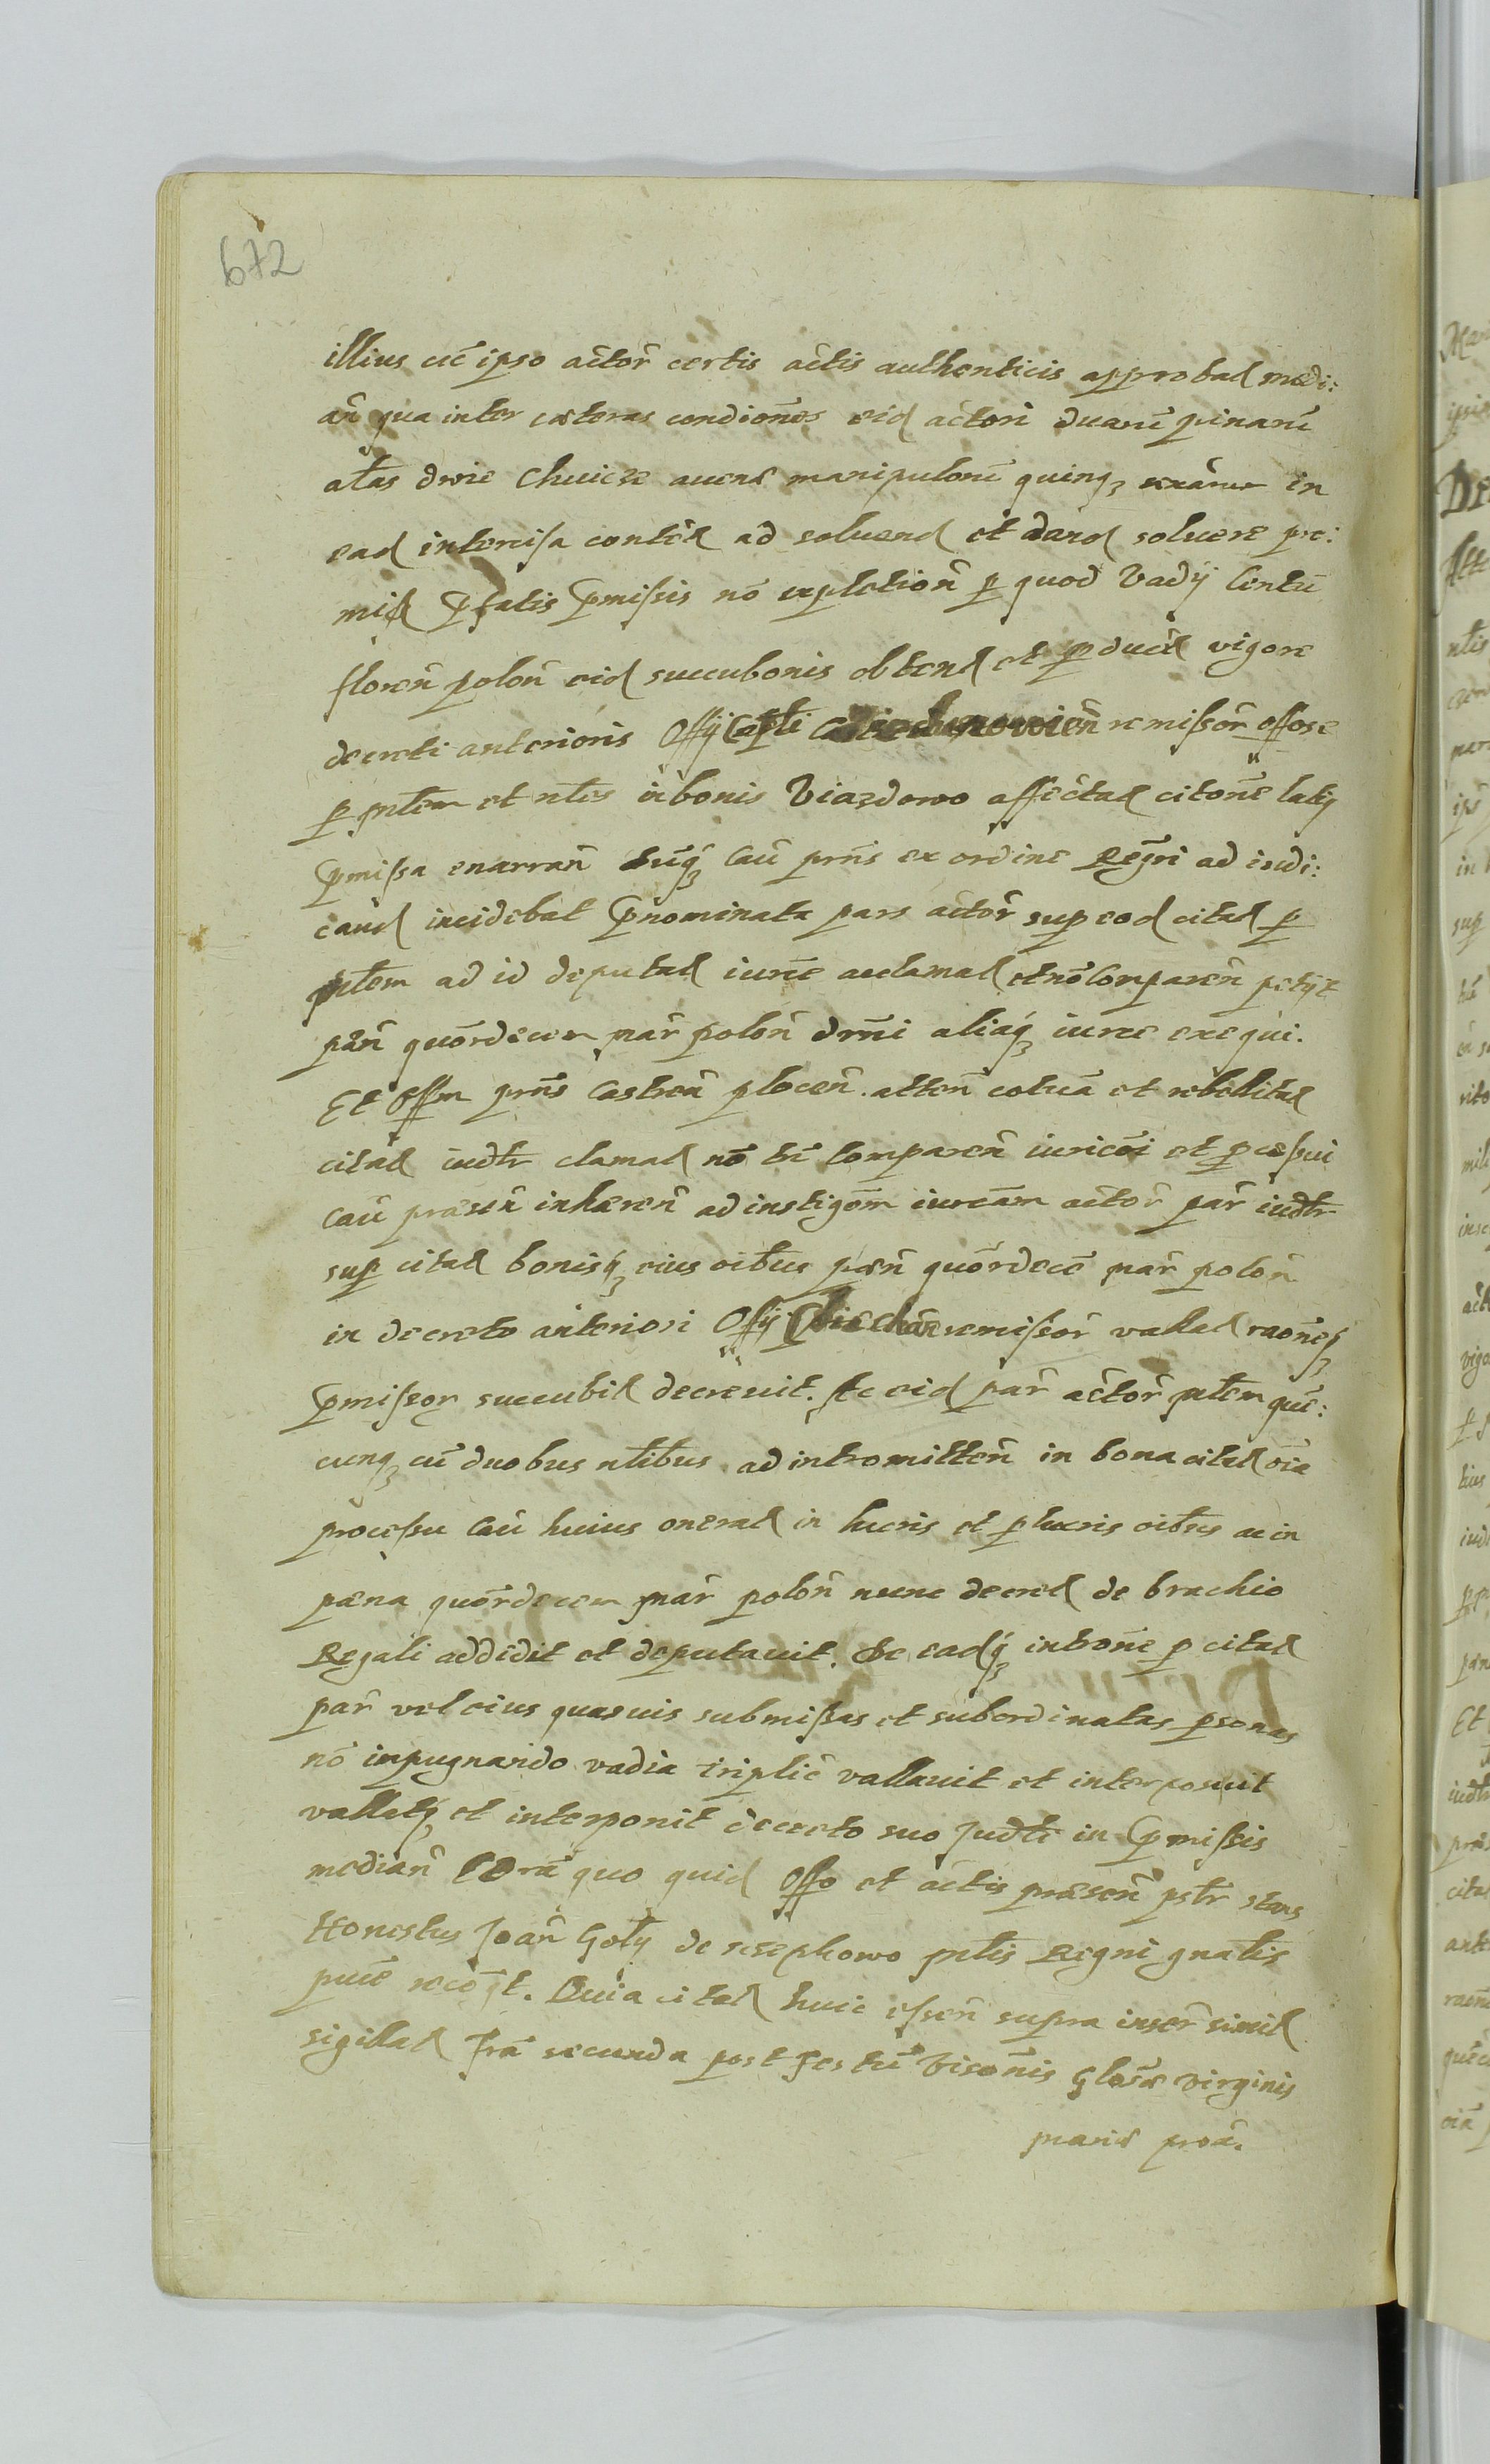 672
illius cū ipso actor̄ certis actis authenticis approbad medi:
an̄ qua inter cæteras condiones eid actori duarū pinarū
alt̄as dwie Chuicze auenæ manipulorū quinq in
ead intercisa content ad soluend et dand soluere pro:
mis p̄fatis p̄missis nō expletion̄ p quod Vadÿ Centū
floren̄ polon̄ eid succubonis obtend et p ducit vigore
decreti anterioris Offÿ Capti remissor̄ offose
p mtem et nt̄es in bonis Viazdowo affectat citonē latiq
p̄missa enarran̄ Cau prn̄s ex ordine Regri ad iudi:
cand incidebat p̄nominata pars actor̄ sup eod citat p
mtem ad id deputat iurē acclamat et nō Comparen̄ petÿt
pæn̄ quordecem mar̄ polon̄ drn̄i aliaq iure exequi.
Et Offm prn̄s Castren̄ plocen̄ atten̄ cotuā et rebellitat
citat iudtr clamat nō tn̄ Comparen̄ iuricōi et p cessui
Cau præsen̄ inhæren̄ ad instigom̄ iureām actor̄ par̄ iudtr
sup citat bonisq eius oibus pæn̄ quordecē mar̄ polon̄
in decreto anteriori Offÿ remissor̄ vallat raoneq
p̄missor succubit decreuit. Ac eid par̄ actor̄ mtem quē:
cunq cū duobus nt̄ibus ad intromitten̄ in bona citat oīa
processu Cau huius onerat in lucris et p lucris oibus ac in
pæna quordecem mar̄ polon̄ nunc decret de brachio
Regali addidit et deputauit. De eadq intronē p citat
par̄ vel eius quasuis submissas et subordinatas psonas
nō inpugnando vadia triplic̄ vallauit et interposuit
vallatq et interponit decreto suo Judti in p̄missis
median̄ Corā quo quid Offo et actis præsen̄ pstr̄ stans
Honestus Joan̄ Goly de mt̄is Regni gn̄alis
puīe recogt. Quia citat huic essen̄ supra inser̄ simil
sigillat Frā secunda post Festū Visonis Glosæ Virginis
mariæ proā.